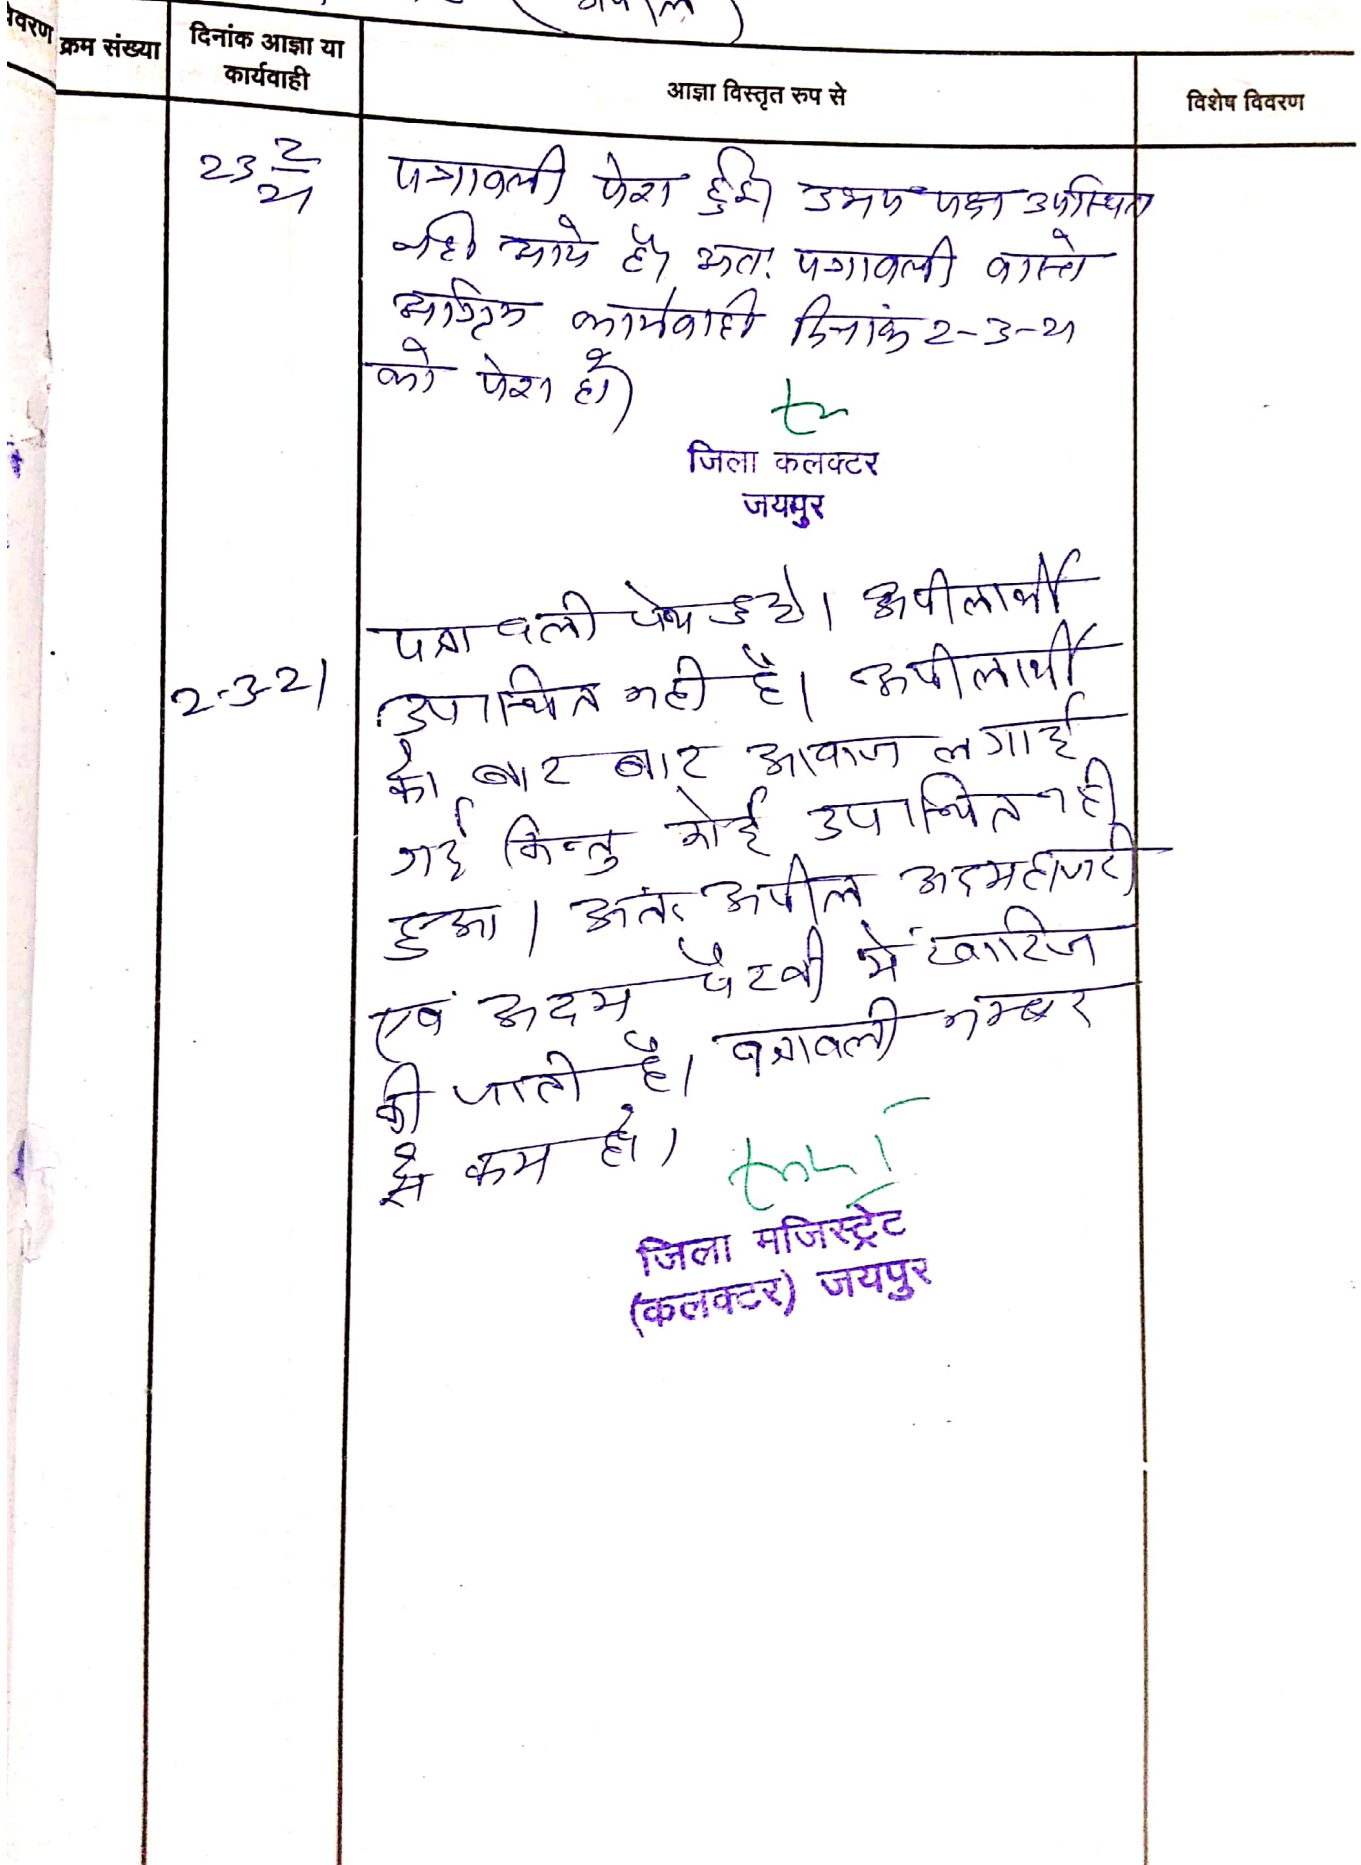 विवरण क्रम संख्या
दिनांक आज्ञा या
कार्यवाही
आज्ञा विस्तृत रुप से
विशेष विवरण
23 2/21
पत्रावली पेश हुई। उभय पक्ष उपस्थित
नही आये है। अतः पत्रावली वास्ते
अग्रिम कार्यवाही दिनांक 2-3-21
को पेश हो।
जिला कलक्टर
जयपुर
2-3-21
पत्रावली पेश हुई। अपीलार्थी
उपस्थित नही है। अपीलार्थी
को बार बार आवाज लगाई
गई किन्तु कोई उपस्थित नही
हुआ। अतः अपील अदमहाजरी
एवं अदम पैरवी में खारिज
की जाती है। पत्रावली नम्बर
से कम हो।
जिला मजिस्ट्रेट
(कलक्टर) जयपुर